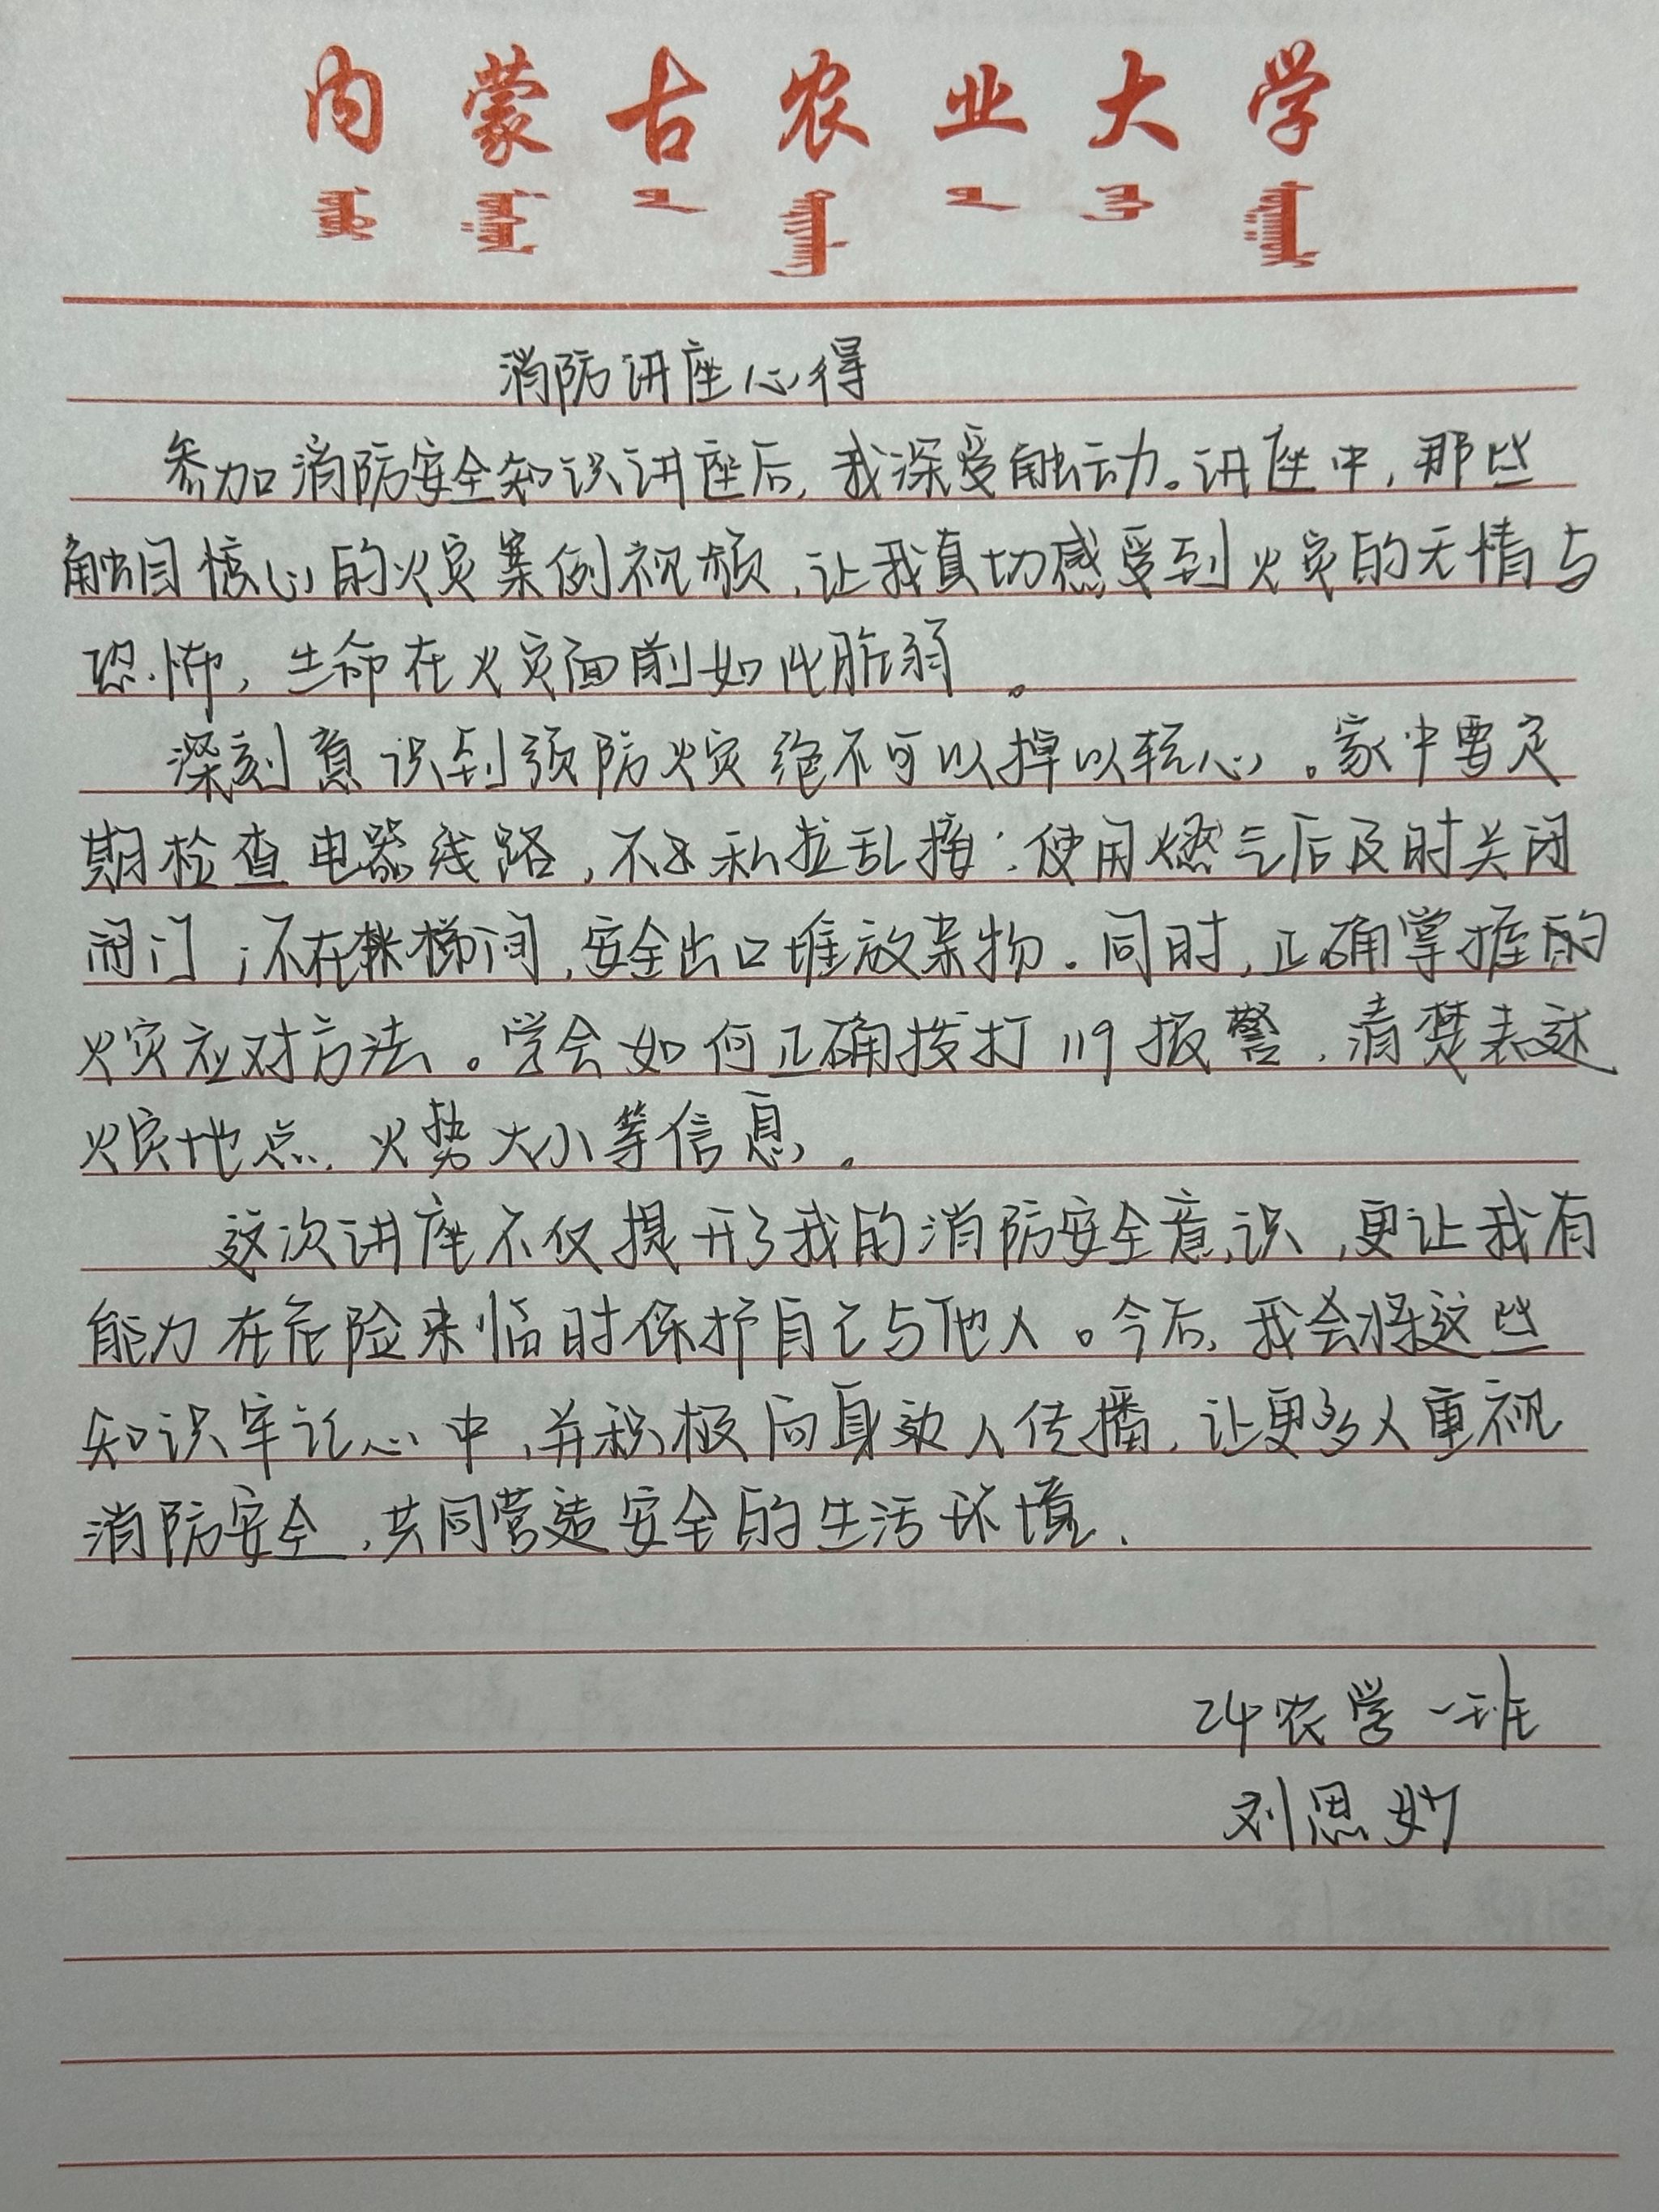 内蒙古农业大学
消防讲座心得
参加消防安全知识讲座后,我深受触动。讲座中,那些
触目惊心的火灾案例视频,让我真切感受到火灾的无情与
恐怖,生命在火灾面前如此脆弱。
深刻意识到预防火灾绝不可以掉以轻心。家中要定
期检查电器线路,不私拉乱接;使用燃气后及时关闭
闭门;不在楼梯间,安全出口堆放杂物。同时,正确掌握的
火灾应对方法。学会如何正确拨打119报警,清楚表述
火灾地点,火势大小等信息。
这次讲座不仅提升了我的消防安全意识,更让我有
能力在危险来临时保护自己与他人。今后,我会将这些
知识牢记心中,并积极向身边人传播,让更多人重视
消防安全,共同营造安全的生活环境.
24农学一班
刘思妙